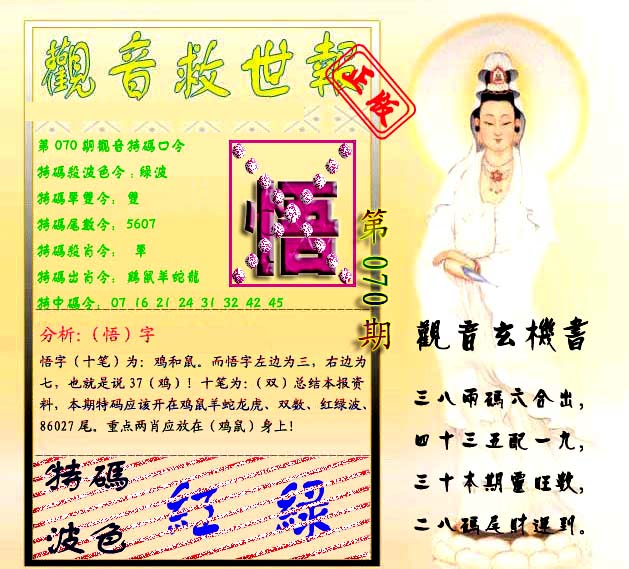 觀音救世報
正版
第070期觀音特碼口令
特碼殺波色令：綠波
特碼單雙令： 雙
特碼尾數令： 5607
特碼殺肖令： 單
特碼出肖令： 鷄鼠羊蛇龍
特中碼令： 07 16 21 24 31 32 42 45
悟
第070期
分析:（悟）字
悟字（十笔）为：鸡和鼠。而悟字左边为三，右边为
七，也就是说 37（鸡）！十笔为：（双）总结本报资
料，本期特码应该开在鸡鼠羊蛇龙虎、双数、红绿波、
86027 尾。重点两肖应放在（鸡鼠）身上！
特碼
波色
紅 綠
觀音玄機書
三八兩碼六合出，
四十三五配一九，
三十本期靈旺數，
二八碼尾財運到。